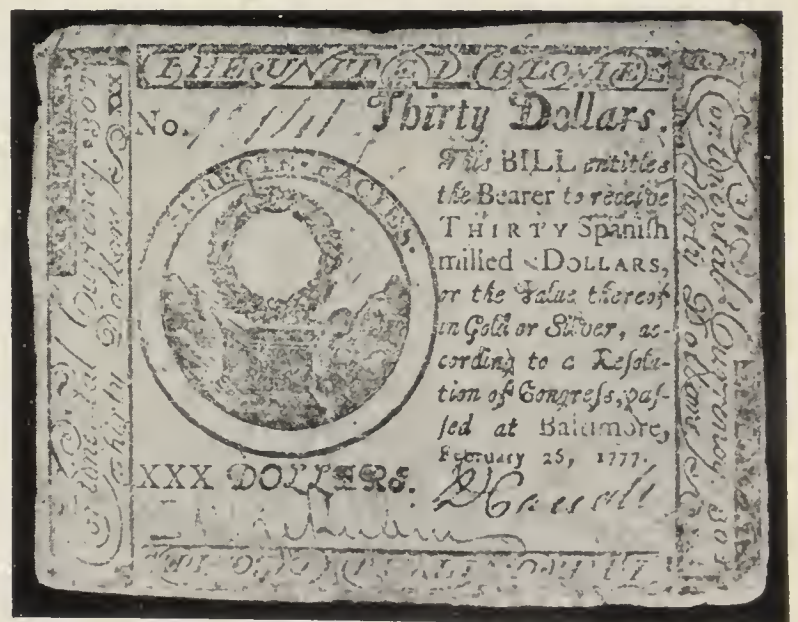 THE UNITED COLONIES
Thirty Dollars.
No.
SI RECTE FACIES.
This BILL entitles
the Bearer to receive
THIRTY Spaniſh
milled DOLLARS,
or the Value thereof
in Gold or Silver, ac-
cording to a Reſolu-
tion of Congreſs, paſ-
ſed at Baltimore,
February 26, 1777.
XXX DOLLARS.
Continental Currency.
Thirty Dollars XXX
Continental Currency.
Thirty Dollars